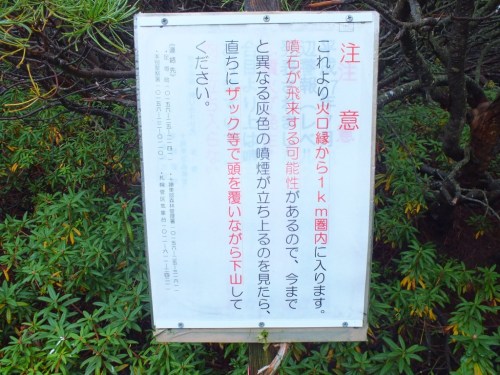 注意
これより火口縁から1km圏内に入ります。
噴石が飛来する可能性があるので、今まで
と異なる灰色の噴煙が立ち上るのを見たら、
直ちにザック等で頭を覆いながら下山して
ください。